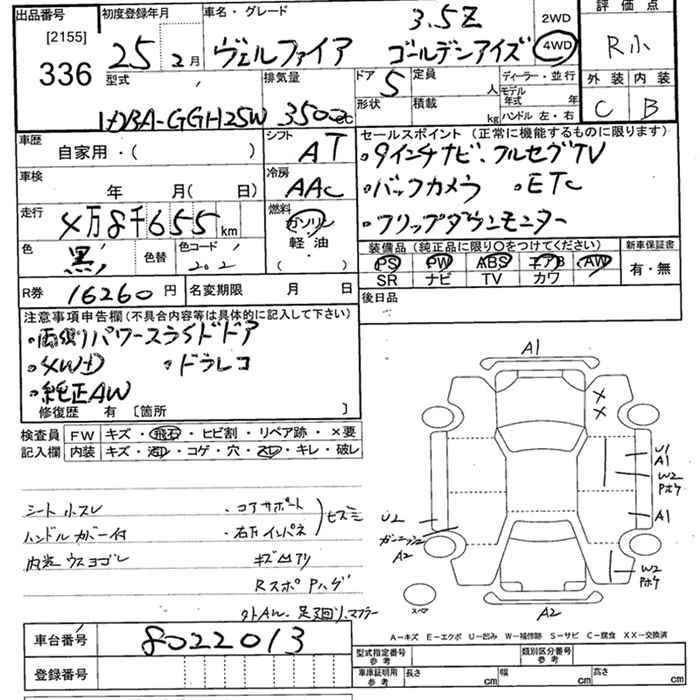 出品番号 初度登録年月 車名・グレード 3.5Z 2WD 評価点
[2155] 336 25年2月 ヴェルファイア ゴールデンアイズ 4WD R小
型式 排気量 ドア 定員 ディーラー・並行 外装 内装
DBA-GGH25W 3500cc 5 人 モデル年式 年 C B
形状 積載 kg ハンドル 左・右
車歴 シフト セールスポイント(正常に機能するものに限ります)
自家用・( ) AT ・9インチナビ、フルセグTV
車検 冷房 ・バックカメラ ・ETC
年 月( 日) AAC ・フリップダウンモニター
走行 燃料
4万8千655km ガソリン
軽・油
( )
装備品(純正品に限り○をつけてください) 新車保証書
色 色替 色コード PS PW ABS エアB AW 有・無
黒 202 SR ナビ TV カワ
R券 16260円 名変期限 月 日 後日品
注意事項申告欄(不具合内容等は具体的に記入して下さい)
・両側パワースライドドア
・4WD ・ドラレコ
・純正AW
修復歴 有 〔箇所 〕
検査員 FW キズ・飛石・ヒビ割・リペア跡・×要
記入欄 内装 キズ・汚れ・コゲ・穴・スレ・キレ・破レ
シート小スレ ・コアサポート
ハンドルカバー付 ・右フインパネ ヒズミ
内装ウスヨゴレ キズ凹アリ
RスポPハゲ
外AW、足廻り、マフラー
A1
X
X
U1
A1
W2
Pボケ
A1
W2
Pボケ
U2
ガーニッシュ
A2
スペア
A2
A-キズ E-エクボ U-凹み W-補修跡 S-サビ C-腐食 XX-交換済
車台番号 8022013
型式指定番号 参考 類別区分番号 参考
登録番号 車庫証明用 参考 長さ cm 幅 cm 高さ cm